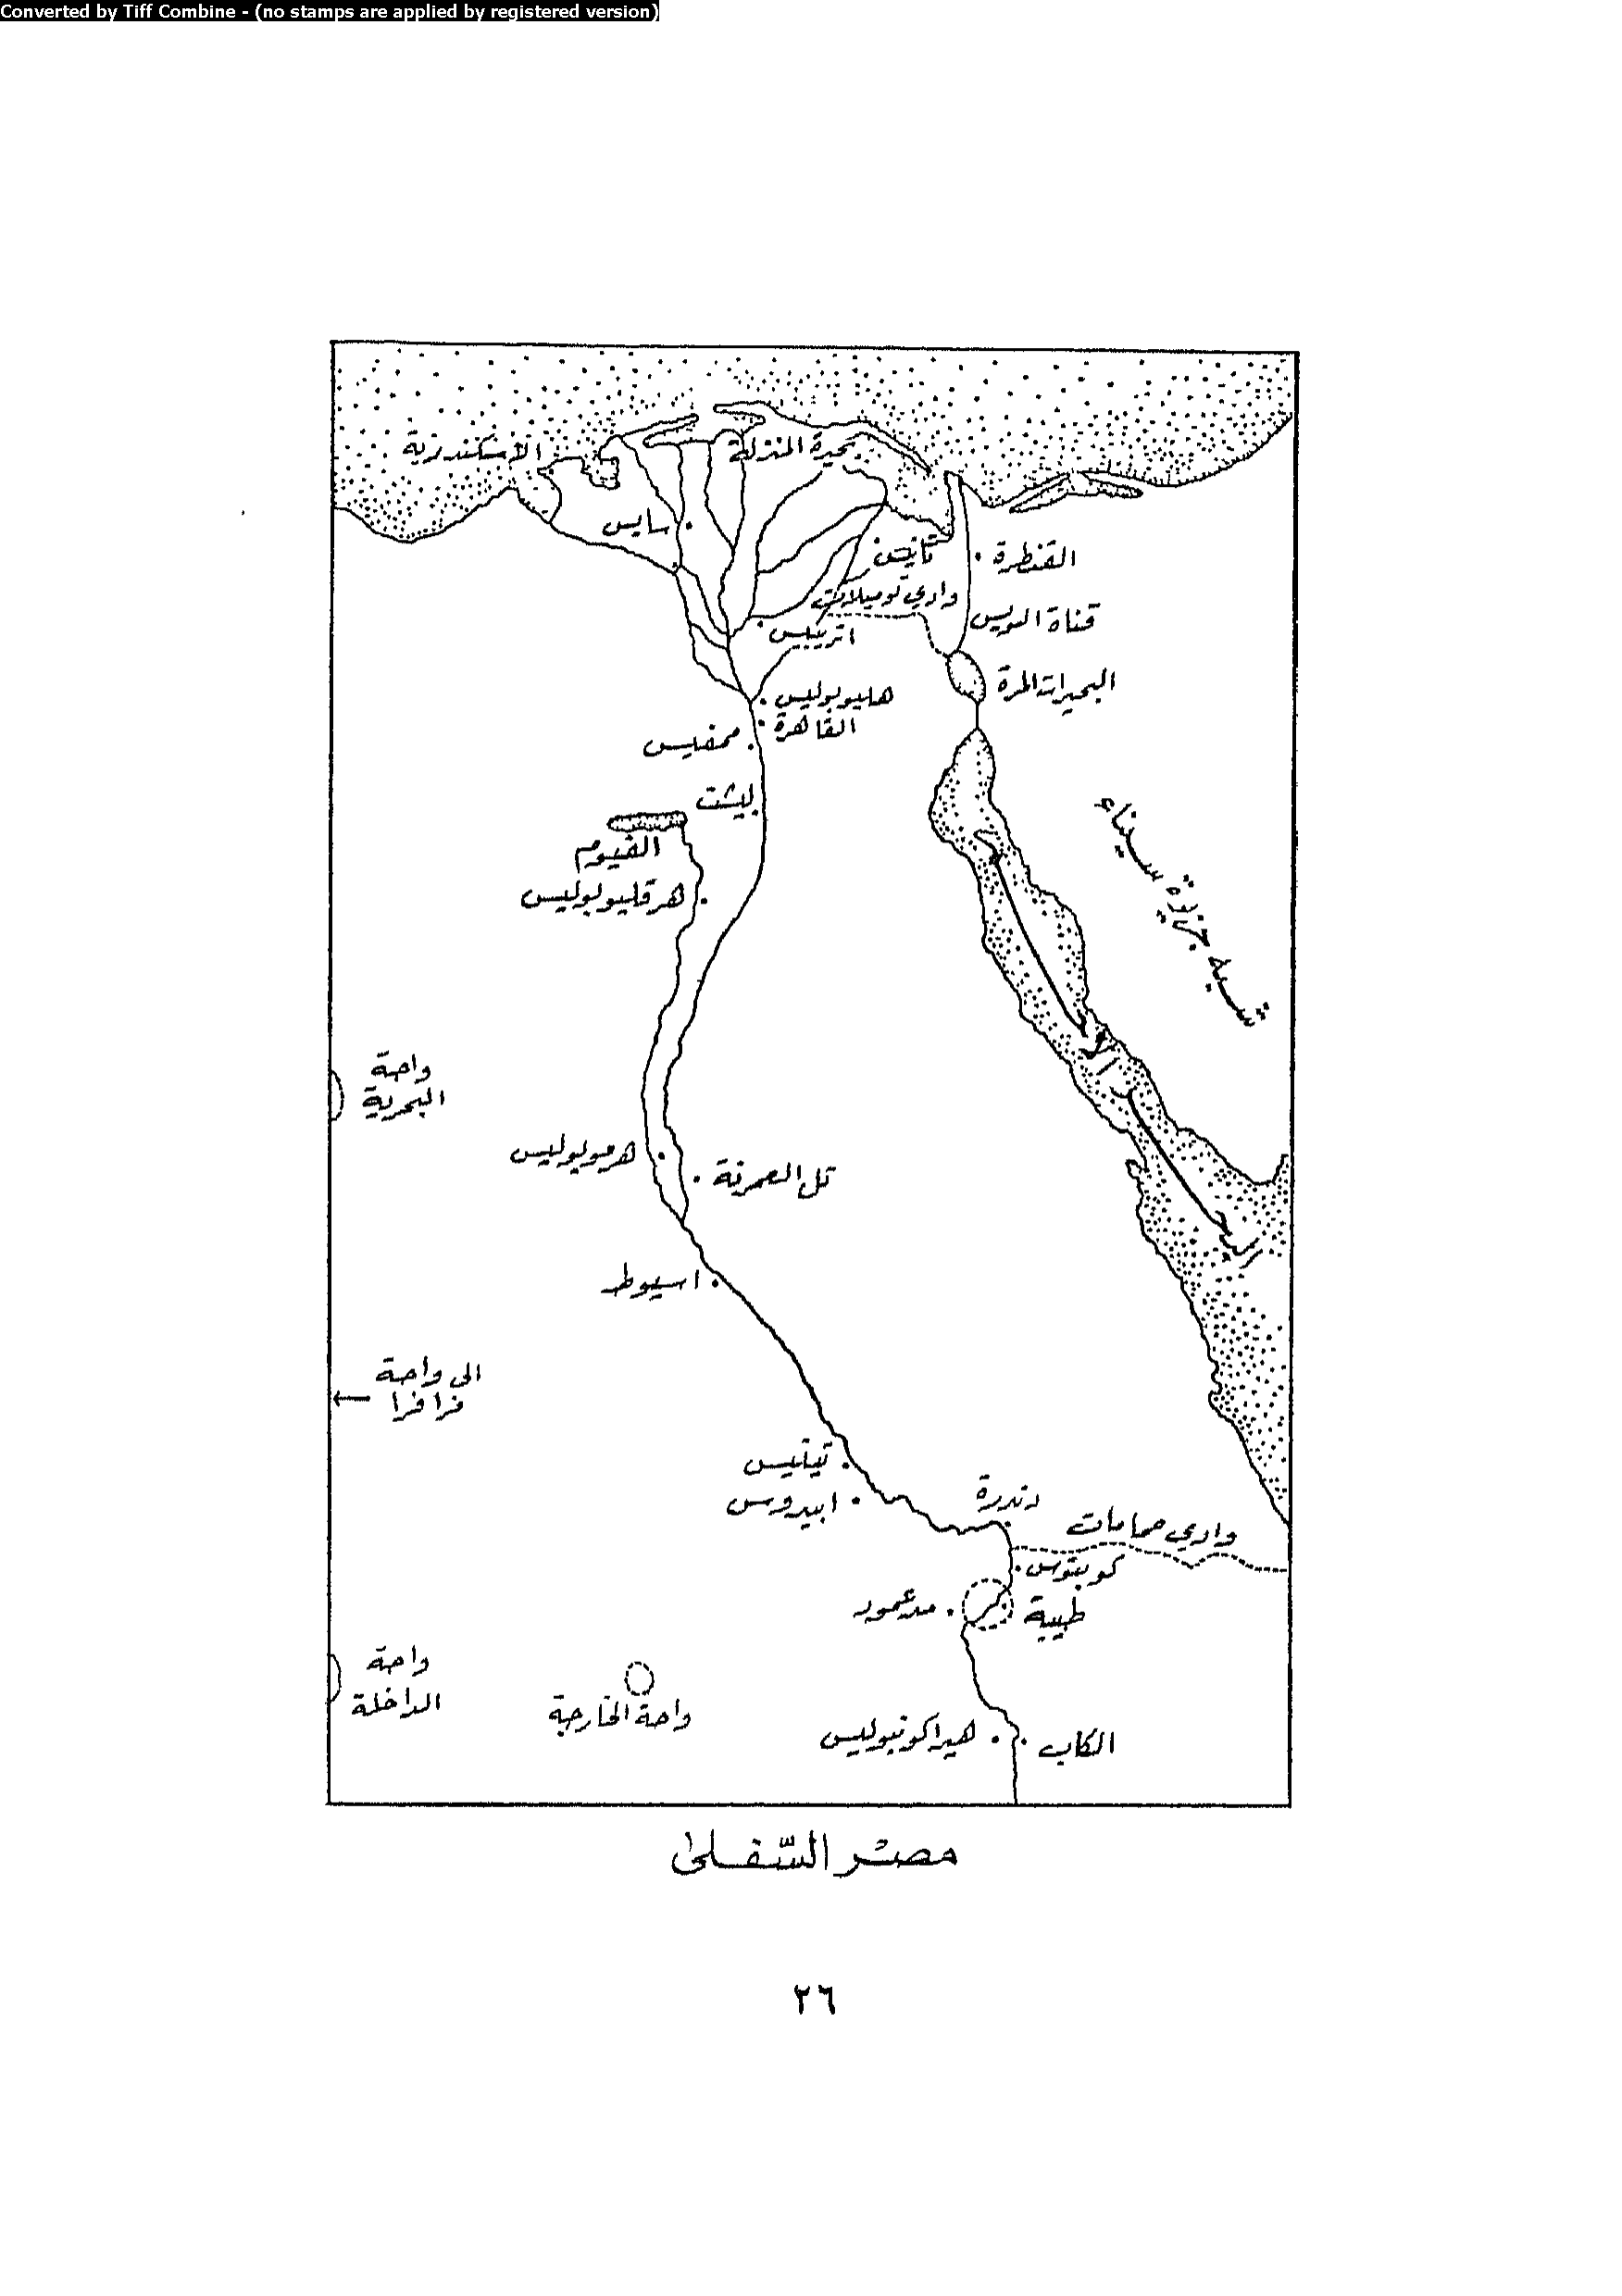 Converted by Tiff Combine - (no stamps are applied by registered version)
الاسكندرية
بحيرة المنزلة
سايس
تانيس
القنطرة
وادي توميلات
قناة السويس
اتريبس
البحيرات المرة
هليوبوليس
القاهرة
ممفيس
ليشت
الفيوم
هرقليوبوليس
شبه جزيرة سيناء
البحر
واحة
البحرية
هرموبوليس
تل العمرنة
اسيوط
الى واحة
فرافرا
تينيس
ابيدوس
دندرة
وادي حمامات
كوبتوس
طيبة
مدعمود
واحة
الداخلة
واحة الخارجة
هيراكونبوليس
الكاب
مصر السّفلى
٢٦